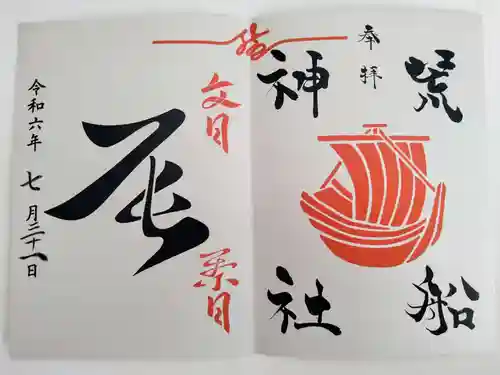 奉拝
荒船
神社
文月
辰
葉月
令和六年 七月三十一日